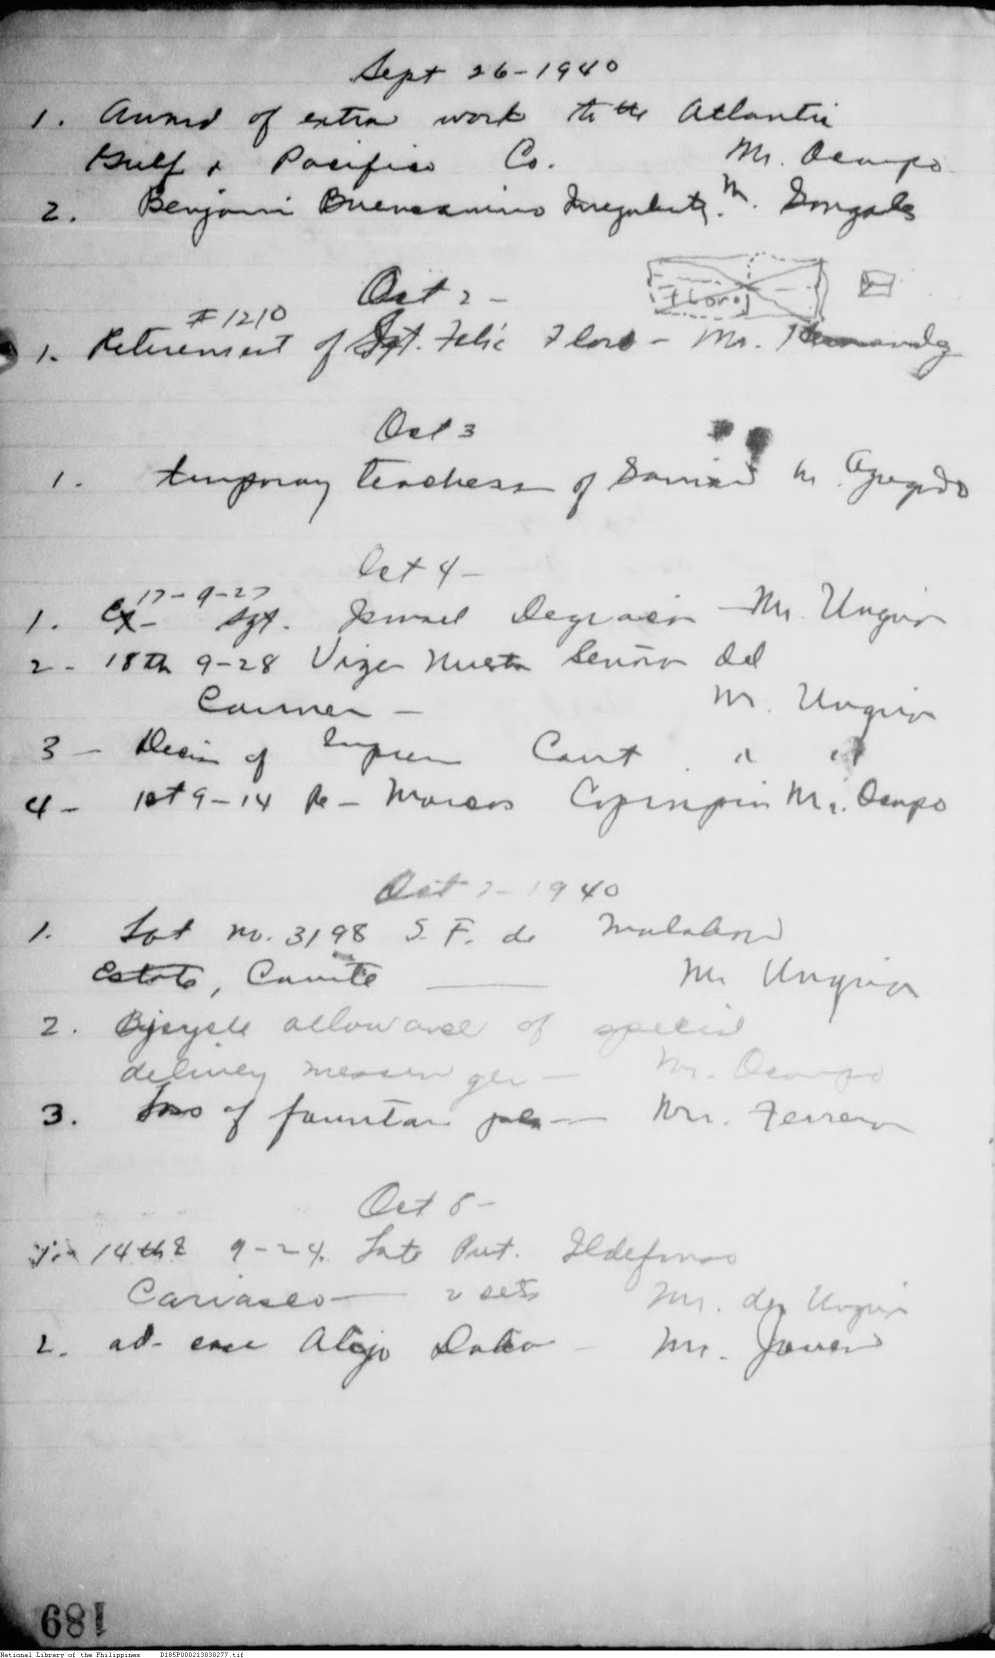 Sept 26-1940
1. Award of extra work to the Atlantic
Gulf & Pacific Co. Mr. Ocampo
2. Benjamin Buencamino Irregularity. Mr. Gonzales
Oct 2 -
Floro
#1210
1. Retirement of Sgt. Felic Floro - Mr. Hernandez
Oct 3
1. temporary teachers of Mr. Agregado
Oct 4 -
17-9-27
1. Ex- Sgt. Ismael - Mr. Unguior
2 - 18th 9-28 Señora del
Carmen - Mr. Unguior
3 - Decision of Supreme Court " "
4 - 1st 9-14 Re - Marcos Mr. Ocampo
Oct 7 - 1940
1. Lot No. 3198 S. F. de Malabon
Estate, Cavite — Mr Unguior
2. Bicycle allowance of special
delivery messenger — Mr. Ocampo
3. Loss of fountain pen — Mr. Ferrera
Oct 8 -
14th 9-24. Late Pvt. Ildefonso
Cariaseo — 2 sets Mr. de Unguior
2. ad- case Alejo - Mr. Javier
681
National Library of the Philippines D185P000213830277.tif